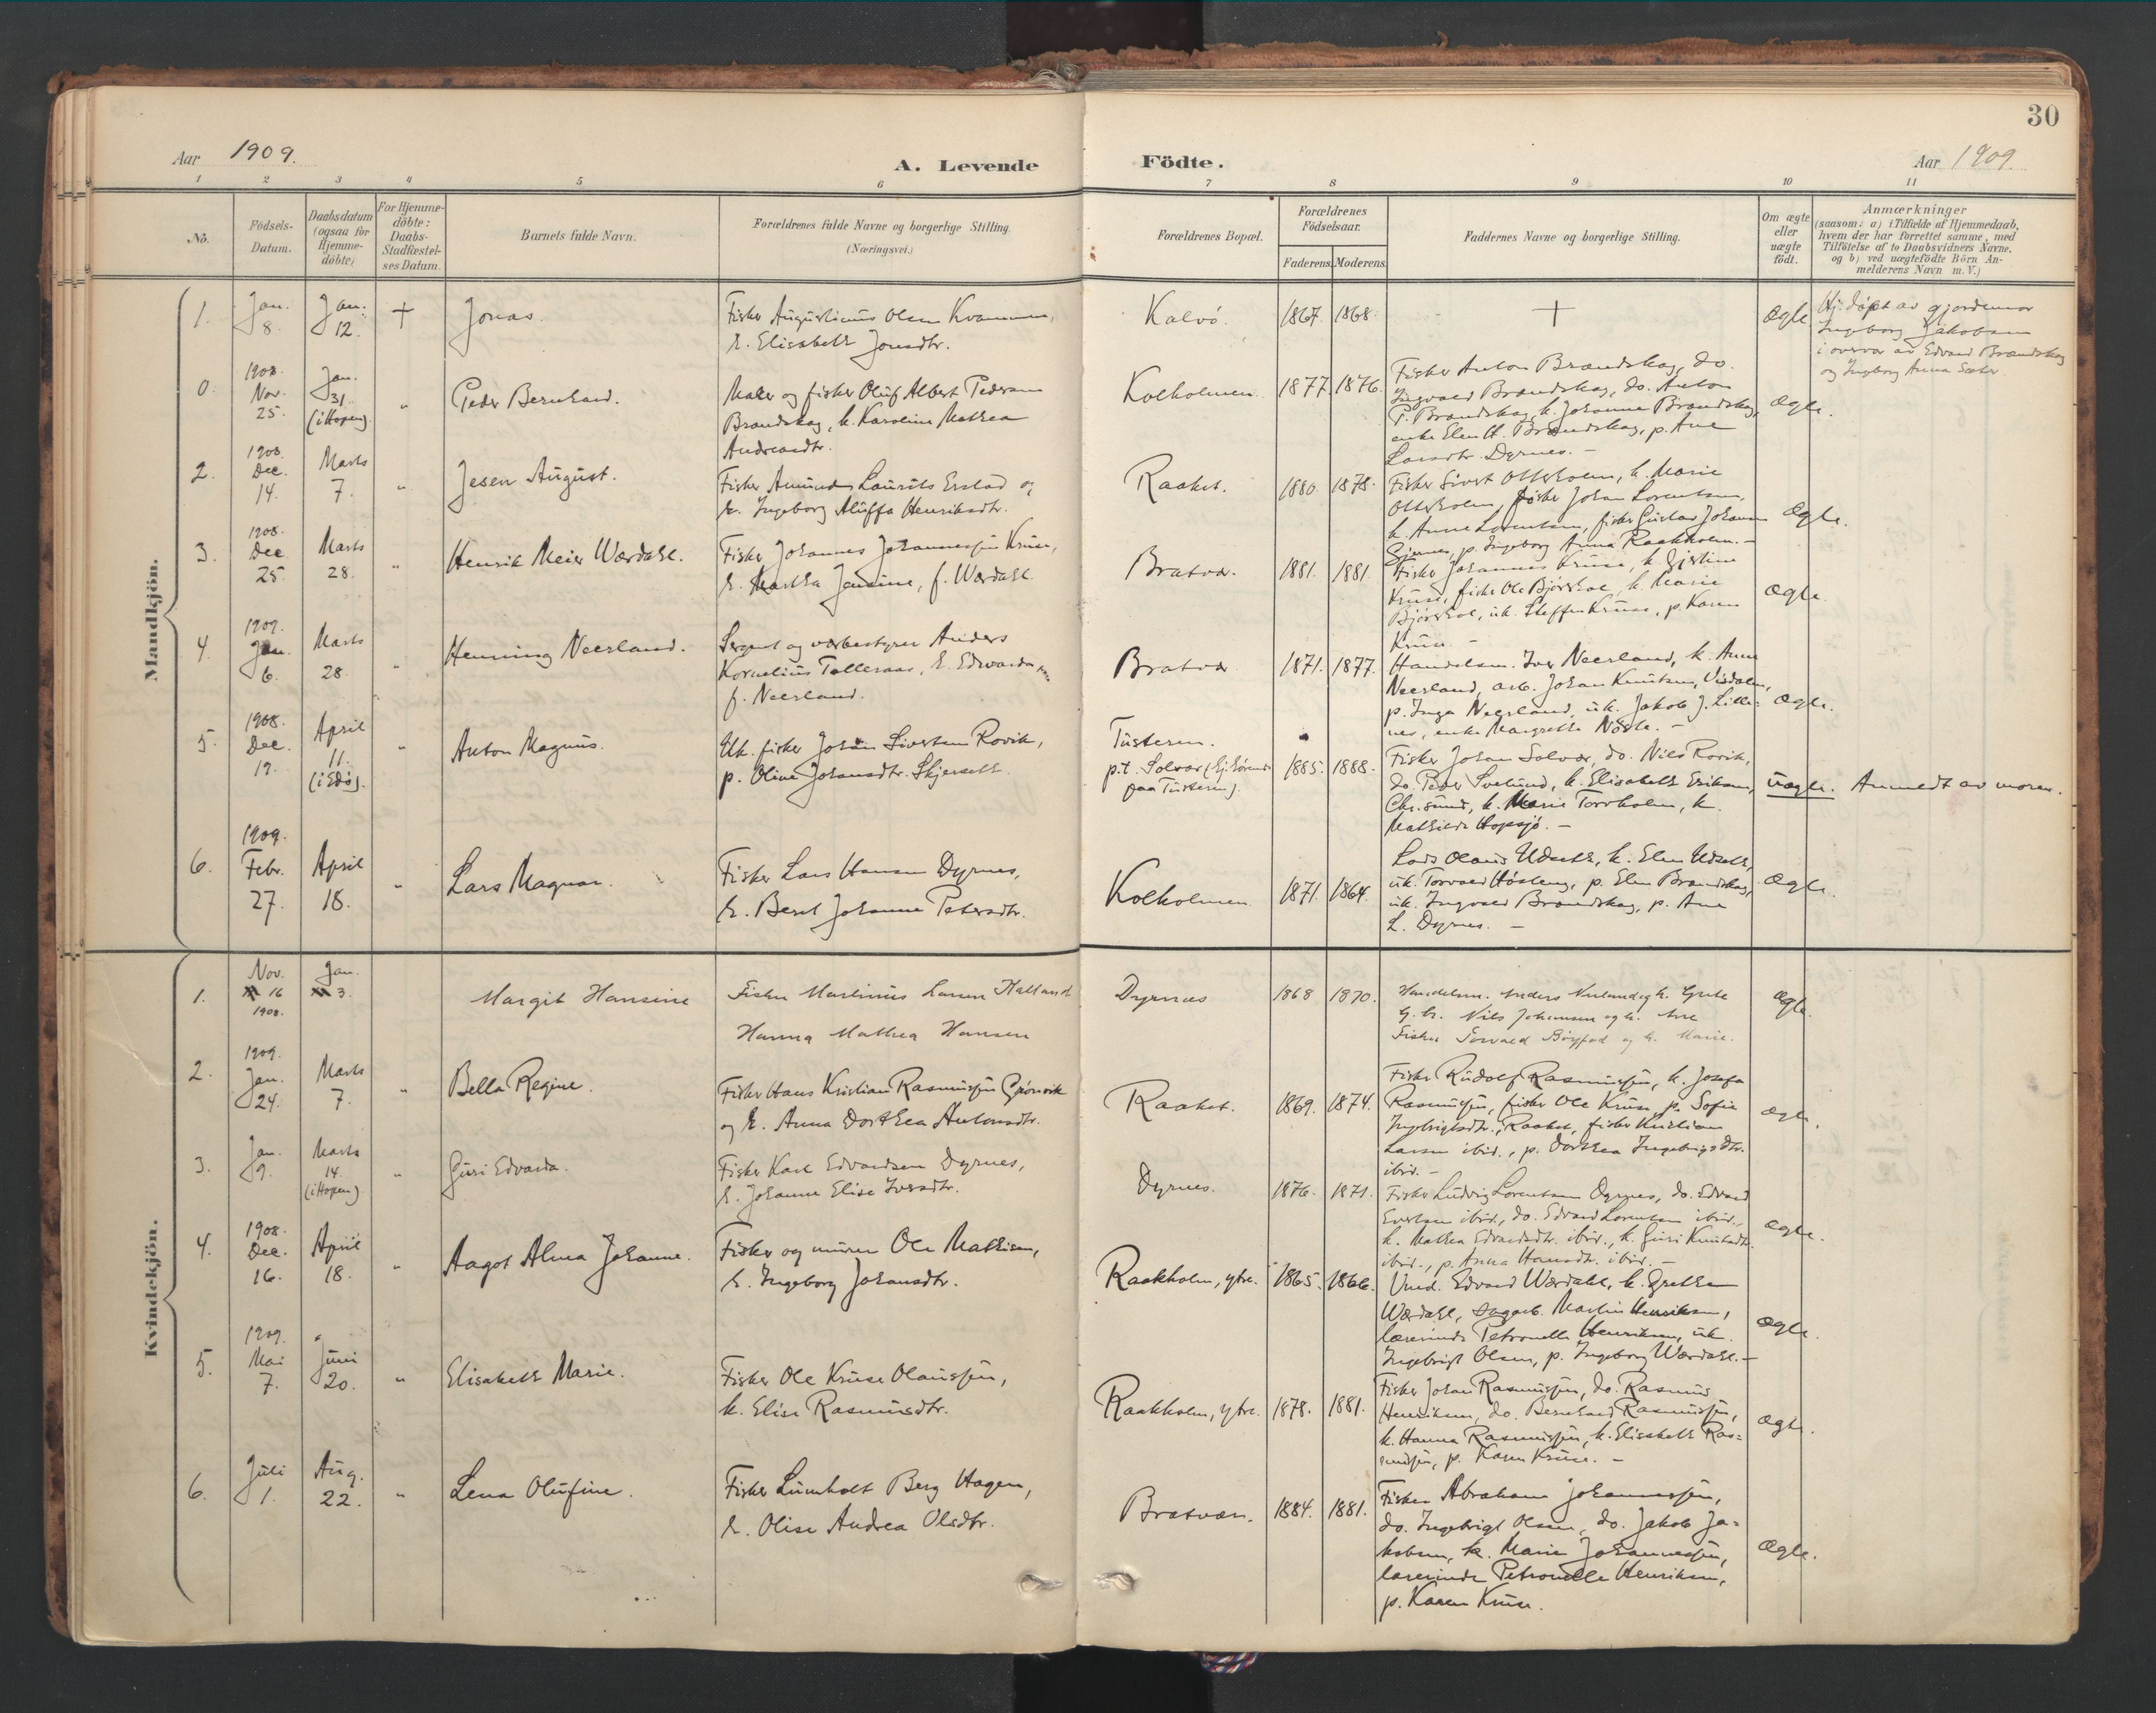 30
Aar 1909.
A. Levende Födte.
Aar 1909.
1 2 3 4 5 6 7 8 9 10 11
No.
Födsels-
Datum.
Daabsdatum
(ogsaa for
Hjemme-
döbte)
For Hjemme-
döbte:
Daabs-
Stadfæstel-
ses Datum.
Barnets fulde Navn.
Forældrenes fulde Navne og borgerlige Stilling.
(Næringsvei.)
Forældrenes Bopæl.
Forældrenes
Födselsaar.
Faderens. Moderens.
Faddernes Navne og borgerlige Stilling.
Om ægte
eller
uægte
födt.
Anmærkninger
(saasom: a) i Tilfælde af Hjemmedaab,
hvem der har forrettet samme, med
Tilföielse af to Daabsvidners Navne.
og b) ved uægtefödte Börn An-
melderens Navn m. V.)
Mandkjön.
1.
Jan.
8.
Jan.
12.
+
Jonas.
Fisker Augustinus Olsen Kvammen,
h. Elisabeth Jonsdtr.
Kalvö.
1867. 1868.
+
Ægte
Hj. døpt av gjordemor
Ingeborg Jakobsen
i overvær av Edvard Brændskag
og Ingborg Anna Sæter.
0.
1908.
Nov.
25.
Jan.
31.
(i Hopen)
"
Peder Bernhard.
Maler og fisker Oluf Albert Pedersen
Brændskag, h. Karoline Mathea
Andreasdtr.
Kolholmen.
1877. 1876.
Fisker Anton Brændskag, do.
Ingvald Brændskag, do. Anton
P. Brændskag, k. Johanne Brændskag,
enke Elen H. Brændskag, p. Ane
Larsdtr. Dyrnes. -
Ægte.
2.
1908.
Dec.
14.
Marts
7.
"
Jesen August.
Fisker Amund Laurits Erstad og
h. Ingeborg Aluffa Henriksdtr.
Raaket.
1880. 1878.
Fisker Sivert Otterholm, k. Marie
Otterholm, fisker Johan Lorentsen,
k. Anne Lorentsen, fisker Gustav Johansen
p. Ingeborg Anna Raakholm. -
Ægte.
3.
1908.
Dec
25.
Marts
28.
"
Henrik Meier Wærdahl.
Fisker Johannes Johannessen Kruse,
h. Martha Jensine, f. Wærdahl
Bratvær.
1881. 1881.
Fisker Johannes Kruse, k. Gjertine
Kruse, fisker Ole Bjørshol, k. Marie
Bjørshol, uk. Steffen Kruse, p. Karen
Kruse -
Ægte.
4.
1909.
Jan.
6.
Marts
28.
"
Henning Neerland.
Sergent og værbestyrer Anders
Kornelius Tolleraas, h. Edvarda
f. Neerland.
Bratvær
1871. 1877.
Handelsm. Iver Neerland, k. Anne
Neerland, arb. Johan Knutsen,
p. Inga Neerland, uk. Jakob J. Lille-
nes, enke Margrethe -
Ægte.
5.
1908.
Dec.
19.
April
11.
(i Edö).
"
Anton Magnus.
Uk. fisker Johan Sivertsen Rovik,
p. Oline Johansdtr. Skjerseth.
Tusteren.
p.t. Solvær
paa Tusteren).
1885. 1888.
Fisker Johan Solvær, do. Nils Rovik,
do. Peder Svelund, k. Elisabeth Eriksen,
Chr.sund, k. Marie Torrholm, k.
Mathilde Hopsjö. -
Uægte.
Anmeldt av moren.
6.
1909.
Febr.
27.
April
18.
"
Lars Magnar.
Fisker Lars Hansen Dyrnes,
h. Beret Johanne Petersdtr.
Kolholmen
1871. 1864.
Lods Olaus Udseth, k. Elen Udseth,
uk. Torvald, p. Elen Brændskag,
uk. Ingvald Brændskag, p. Ane
L. Dyrnes. -
Ægte.
Kvindekjön.
1.
Nov.
16
1908.
Jan.
3.
Margit Hansine
Fisker Martinus Larsen
Hanna Mathea Hansen
Dyrnæs
1868 1870.
Handelsm. Anders Neerland og h. Grete
G. br. Nils Johansen og h.
Fisker Torvald og h. Marie.
Ægte
2.
1909.
Jan.
24.
Marts
7.
"
Bella Regine.
Fisker Hans Kristian Rasmussen Grönvik
og h. Anna Dorthea Antonsdtr.
Raaket.
1869. 1874.
Fisker Rudolf Rasmussen, k. Josefa
Rasmussen, fisker Ole Kruse, p. Sofie
Ingebrigtsdtr., Raaket, fisker Kristian
Larsen ibid., p. Dorthea Ingebrigtsdtr.
ibid. -
Ægte.
3.
Jan.
9.
Marts
14.
(i Hopen)
"
Guri Edvarda.
Fisker Karl Edvardsen Dyrnes,
h. Johanne Elise Iversdtr.
Dyrnes.
1876. 1871.
Fisker Ludvig Lorentsen Dyrnes, do. Edvard
Evertsen ibid., do. Edvard Lorentsen ibid.,
k. Mathea Edvardsdtr. ibid., k. Guri Knutsdtr.
ibid., p. Anna Hansdtr. ibid. -
Ægte.
4.
1908.
Dec.
16.
April
18.
"
Aagot Alma Johanne.
Fisker og murer Ole Mathisen,
h. Ingeborg Johansdtr.
Raakholm, ytre.
1865. 1866.
Edvard Wærdahl, k. Grethe
Wærdahl, Martin Henriksen,
lærerinde Petronelle Henriksen, uk.
Ingebrigt Olsen, p. Ingeborg Wærdahl. -
Ægte.
5.
1909.
Mai
7.
Juni
20.
"
Elisabeth Marie.
Fisker Ole Kruse Olaussen,
k. Elise Rasmusdtr.
Raakholm, ytre.
1878. 1881.
Fisker Johan Rasmussen, do. Rasmus
Henriksen, do. Bernhard Rasmussen,
k. Hanna Rasmussen, k. Elisabeth Ras-
mussen, p. Karen Kruse. -
Ægte.
6.
Juli
1.
Aug.
22.
"
Lena Olufine.
Fisker Lumholt Berg Hagen,
h. Olise Andrea Olsdtr.
Bratvær.
1884. 1881.
Fisker Abraham Johannessen,
do. Ingebrigt Olsen, do. Jakob Ja-
kobsen, k. Marie Johannessen,
lærerinde Petronelle Henriksen,
p. Karen Kruse.
Ægte.